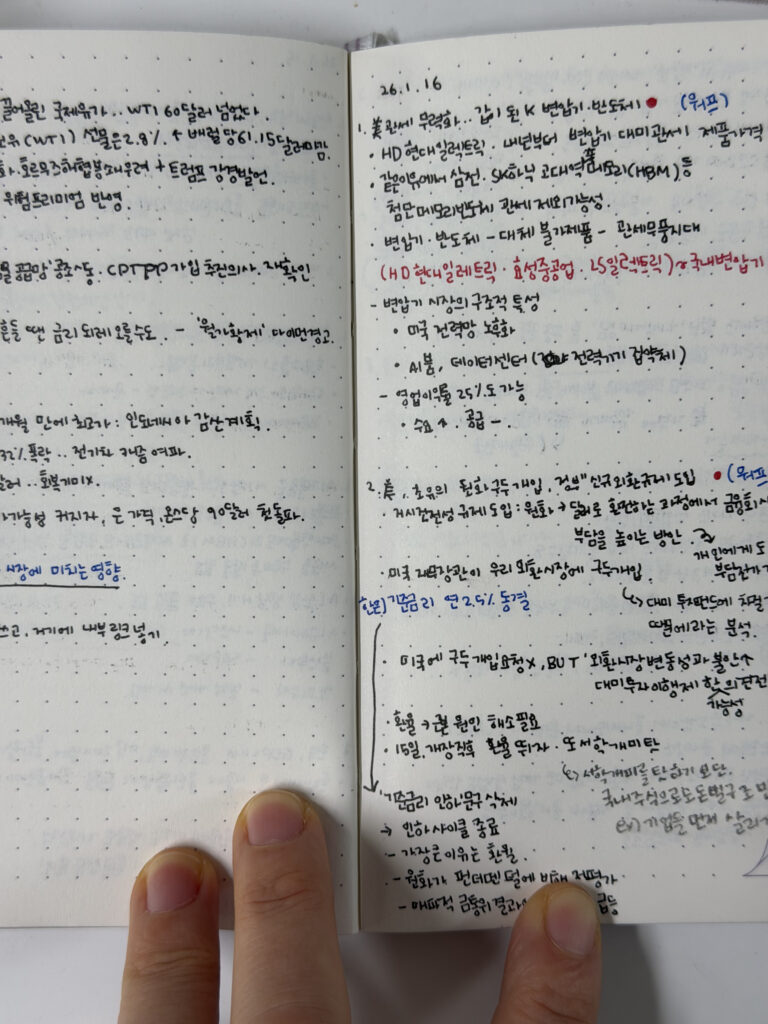 끌어올린 국제유가.. WTI 60달러 넘었다.
(WTI) 선물은 2.8% ↑ 배럴당 61.15달러 마감
호르무즈해협 봉쇄 우려 + 트럼프 강경발언.
위험프리미엄 반영.
공급망 공조. CPTPP 가입 추진의사. 재확인
흔들 땐 금리 되레 오를수도. - '월가황제' 다이먼 경고.
개월 만에 최고가 : 인도네시아 감산계획.
32% 폭락 .. 전기차 캐즘 여파.
.. 회복기미x.
가능성 커지자, 은 가격, 온스당 90달러 첫 돌파.
시장에 미치는 영향.
쓰고, 거기에 내부링크 넣기.
26.1.16
1. 美 관세 무력화.. 갑이 된 K 변압기·반도체 (워프)
· HD현대일렉트릭. 내년부터 변압기 대미관세 제품가격
· 같은이유에서 삼전. SK하닉 고대역폭메모리(HBM) 등
첨단메모리반도체 관세 제외가능성.
· 변압기·반도체 - 대체불가제품 - 관세무풍지대
(HD현대일레트릭. 효성중공업. LS일렉트릭) 국내변압기
- 변압기 시장의 구조적 특성
· 미국 전력망 노후화
· AI붐, 데이터센터 (전력기기 집약체)
- 영업이익률 25%도 가능
· 수요 ↑. 공급 -
2. 美, 초유의 원화 구두개입, 정부 "신규외환규제 도입 (워프
· 거시건전성 규제 도입 : 원화 → 달러로 환전하는 과정에서 금융회사
부담을 높이는 방안.
개인에게도
부담전가
· 미국 재무장관이 우리 외환시장에 구두개입.
↳ 대미 투자펀드에 차질
때문에라는 분석.
한은] 기준금리 연 2.5% 동결
· 미국에 구두개입요청x, BUT '외환시장변동성과 불안↑
대미투자이행제한의
가능성
· 환율 → 근본 원인 해소필요
· 15일, 개장직후 환율 뛰자. 또 서학개미 탓
↳ 서학개미를 탓하기 보단.
국내주식으로도 돈 벌 구조
ex) 기업을 먼저 살리
'기준금리 인하' 문구 삭제
→ 인하사이클 종료
- 가장 큰 이유는 환율.
- 원화가 펀더멘털에 비해 저평가
- 매파적 금통위 결과 급등